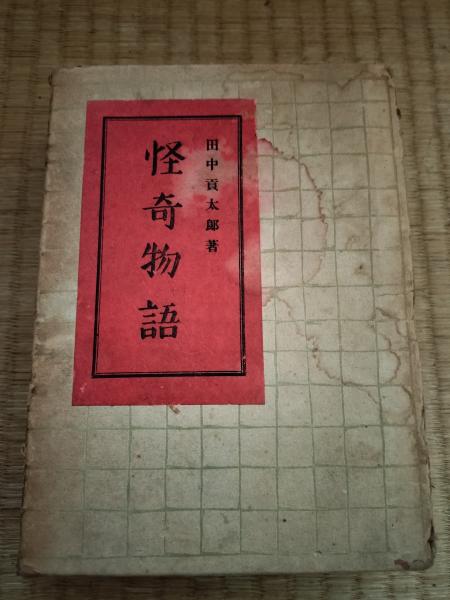 田中貢太郎著
怪奇物語